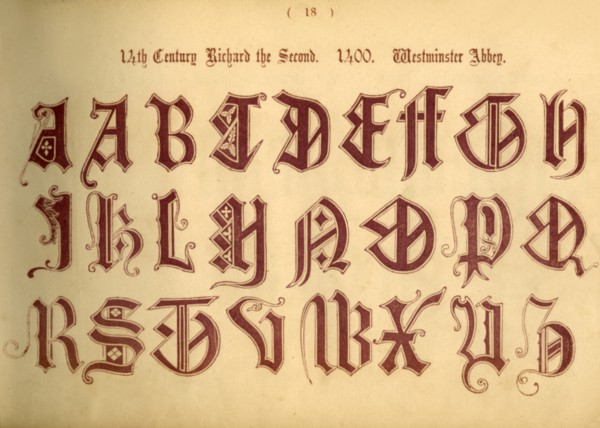 ( 18 )
14th Century Richard the Second. 1400. Westminster Abbey.
A A B C D E F G H
I K L M N O P Q
R S T V W X Y Z